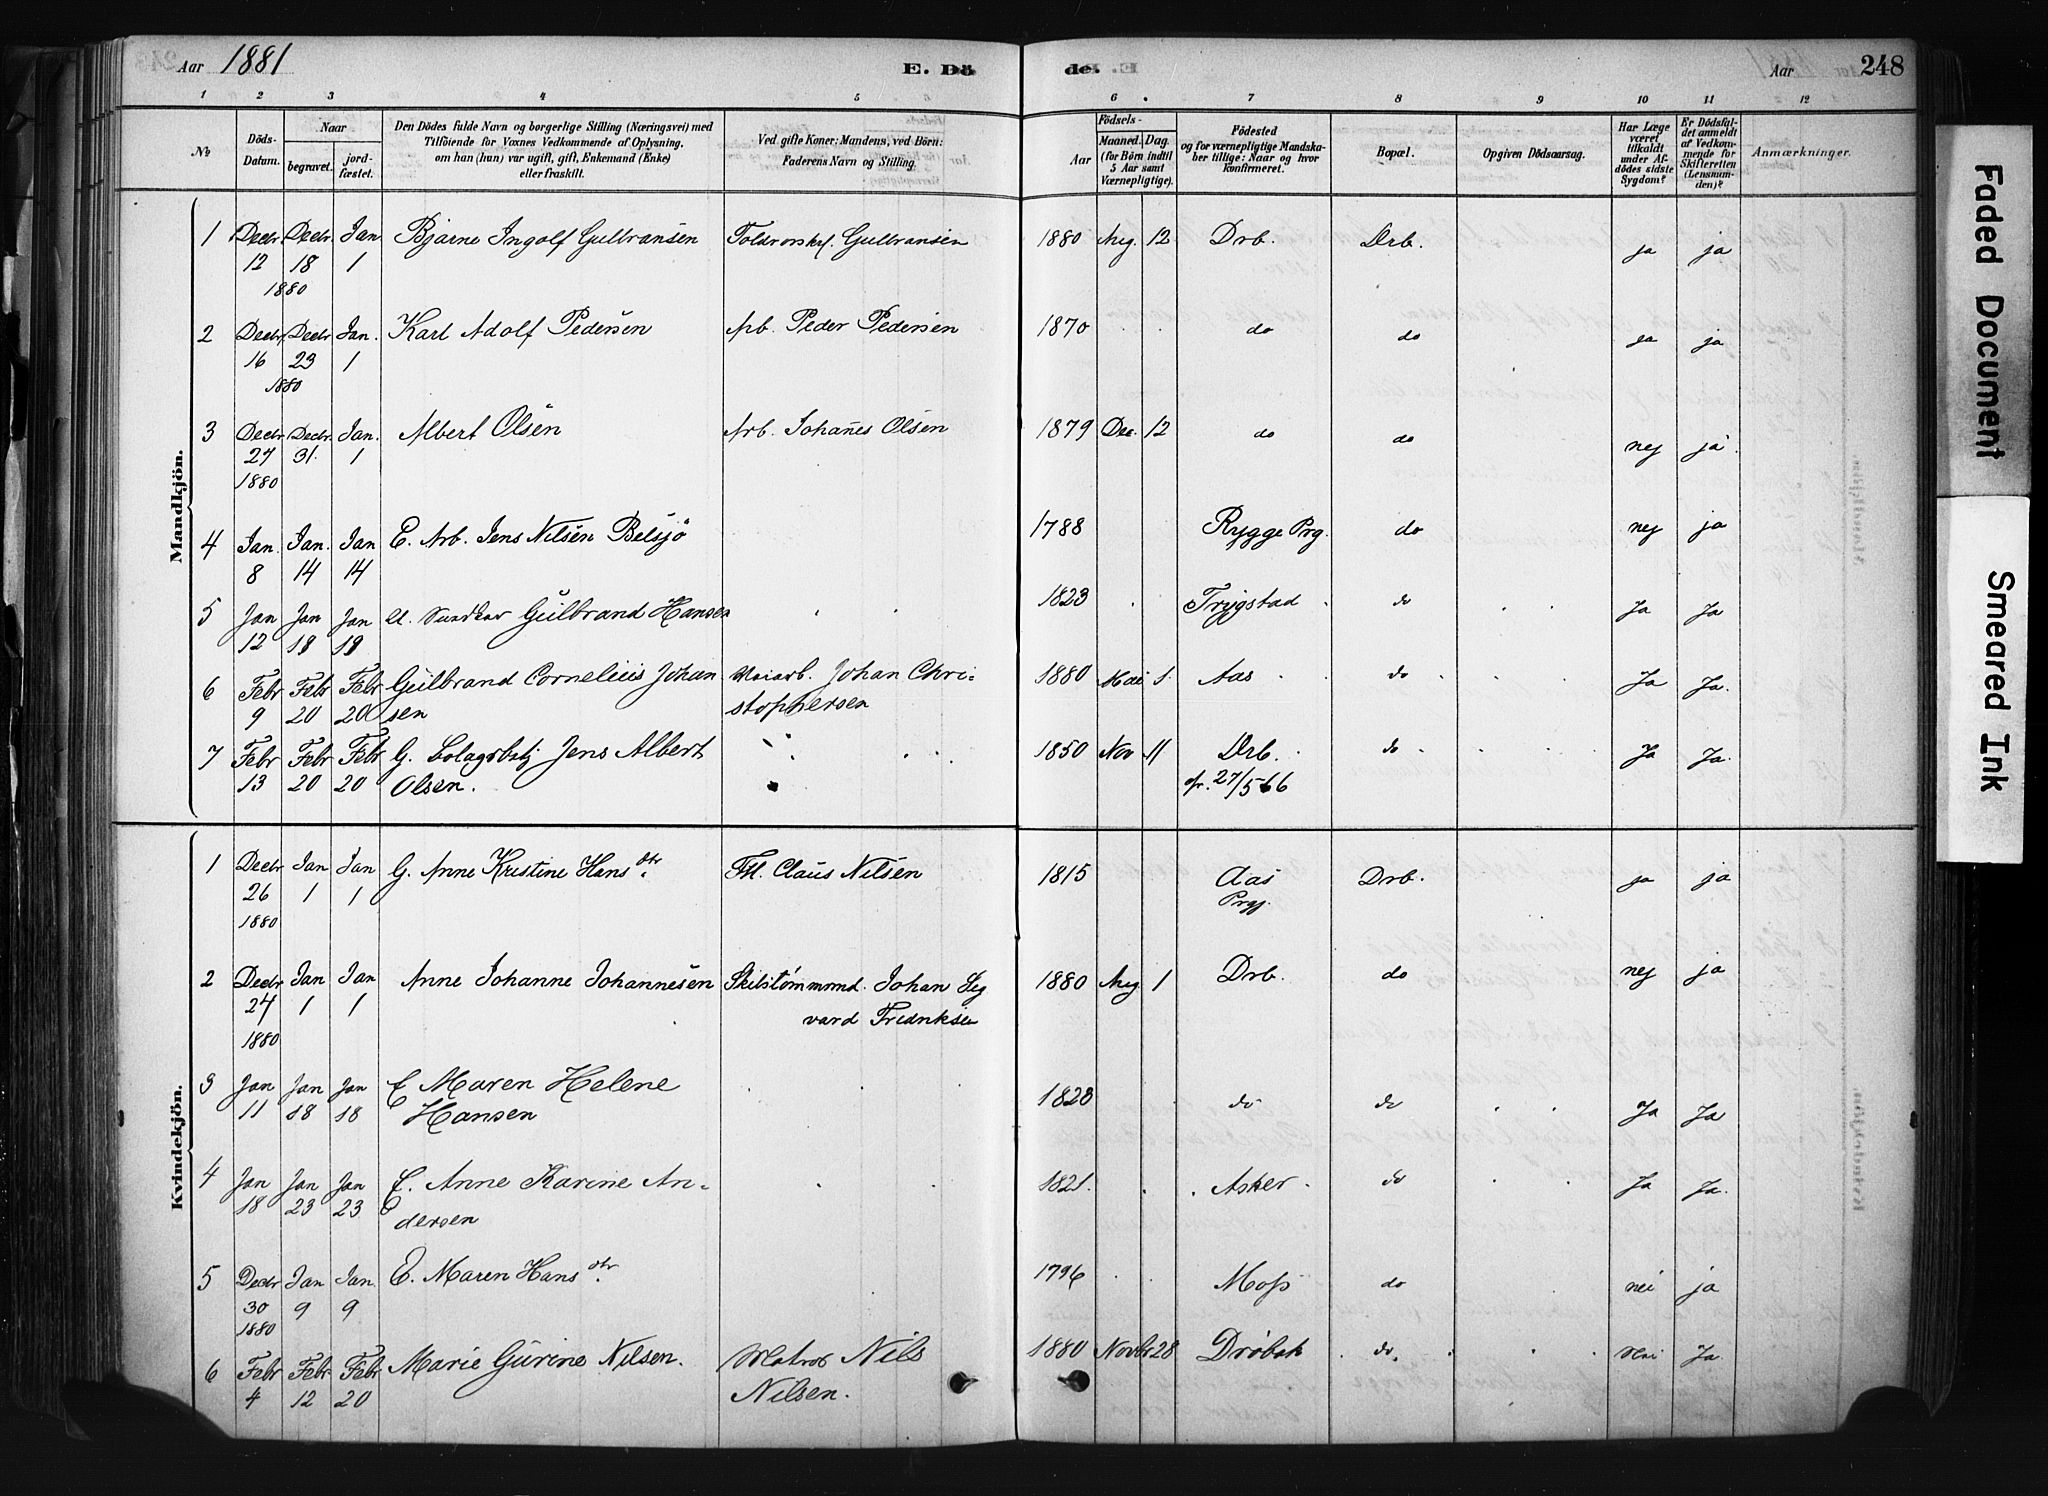 Aar 1881 E. Dö de. Aar 248
1 2 3 4 5 6 7 8 9 10 11 12
No
Döds-Datum.
Naar
begravet. jord-fæstet.
Den Dödes fulde Navn og borgerlige Stilling (Næringsvei) med
Tilföiende for Voxnes Vedkommende af Oplysning,
om han (hun) var ugift, gift, Enkemand (Enke)
eller fraskilt.
Ved gifte Koner: Mandens, ved Börn:
Faderens Navn og Stilling.
Födsels-
Aar Maaned. Dag.
(for Börn indtil
5 Aar samt
Værnepligtige).
Födested
og for værnepligtige Mandska-
ber tillige: Naar og hvor
konfirmeret.
Bopæl.
Opgiven Dödsaarsag.
Har Læge
været
tilkaldt
under Af-
dödes sidste
Sygdom?
Er Dödsfal-
det anmeldt
af Vedkom-
mende for
Skifteretten
(Lensman-
den)?
Anmærkninger.
Mandkjön.
1 Decbr Decbr Jan Bjarne Ingolf Gulbransen Gulbransen 1880 Aug. 12 Drb. Drb. ja ja
12 18 1
1880
2 Decbr Decbr Jan. Karl Adolf Pedersen Arb. Peder Pedersen 1870 do do ja ja
16 23 1
1880
3 Decbr Decbr Jan. Albert Olsen Arb. Johannes Olsen 1879 Dec. 12 do do nej ja
27 31. 1
1880
4 Jan. Jan. Jan E. Arb. Jens Nilsen Belsjö 1788 Rygge Prg. do nej ja
8 14 14
5 Jan Jan Jan Gulbrand Hansen 1823 Trygstad do Ja Ja
12 18 18
6 Febr Febr Febr Gulbrand Cornelius Johan Johan Chri- 1880 Mai 1. Aas do Ja Ja.
9 20 20 sen stophersen
7 Febr Febr Febr G. Jens Albert 1850 Nov 11 Drb. do Ja Ja.
13 20 20 Olsen. 27/5 66
Kvindekjön.
1 Decbr Jan Jan G. Anne Kristine Hansdtr. Claus Nilsen 1815 Aas Drb. ja ja
26 1 1 Prgj.
1880
2 Decbr Jan Jan Anne Johanne Johannesen Skilstømmmd. Johan Sig 1880 Aug 1 Drb. do nej ja
27 1 1 vard Fredriksen
1880
3 Jan Jan Jan E Maren Helene 1828 do do Ja Ja
11 18 18 Hansen
4 Jan Jan Jan E. Anne Karine An- 1821. Asker do Ja Ja.
18 23 23 dersen
5 Decbr Jan Jan E. Maren Hansdtr. 1796 Moss do nei ja
30 9 9
1880
6 Febr Febr Febr Marie Gurine Nilsen. Matros Nils 1880 Novbr 28 Drøbak do. Nei Ja.
4 12 20 Nilsen.
Faded Document
Smeared Ink